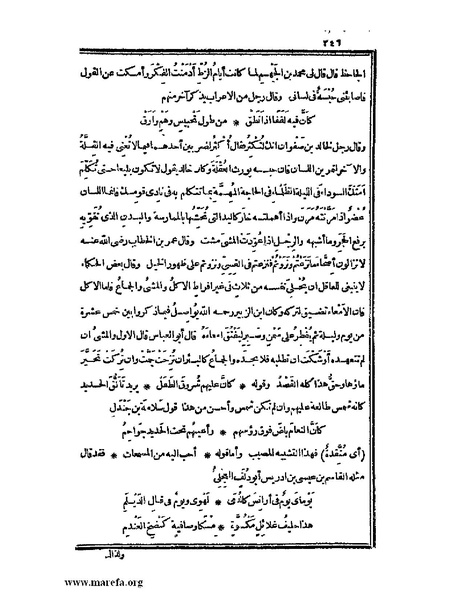 ٣٤٦
الجاحظ قال قال لى محمد بن الجهم لما كانت أيام الزط أدمنت الفكر وأمسكت عن القول
فأصابتنى حبسة فى لسانى وقال رجل من الاعراب يذكر آخر منهم
كأن فيه لففا اذا نطق * من طول تحبيس وهم وأرق
وقال رجل لخالد بن صفوان انك لتكثر فقال أكثر لضربين أحدهما فيما لا تغنى فيه القلة
والآخر لتمرين اللسان فان حبسه يورث العقلة وكان خالد يقول لا تكون بليغا حتى تكلم
أمتك السوداء فى الليلة الظلماء فى الحاجة المهمة بما تتكلم به فى نادى قومك فانما اللسان
عضو اذا مرنته مرن واذا أهملته خار كاليد التى تخشنها بالممارسة والبدن الذى تقويه
برفع الحجر وما أشبهه والرجل اذا عودت المشى مشت وقال عمر بن الخطاب رضى الله عنه
لا تزالون أصحاء ما نزعتم ونزوتم فنزعتم فى القسى ونزوتم على ظهور الخيل وقال بعض الحكماء
لا ينبغى للعاقل أن يخلى نفسه من ثلاث فى غير افراط الاكل والمشى والجماع فأما الاكل
فان الأمعاء تضيق لتركه وكان ابن الزبير رحمه الله يواصل فيما ذكروا بين خمس عشرة
من يوم وليلة ثم يفطر على سمن وصبر ليفتق أمعاءه قال أبو العباس قال الاول والمشى ان
لم تتعهده أوشكت أن تطلبه فلا تجده والجماع كالبئر ان نزحت جمت وان تركت تحير
ماؤها وحق هذا كله القصد وقوله * كأن عليهم شروق الطفل * يريد تألق الحديد
كأنه شمس طالعة عليهم وان لم تكن شمس وأحسن من هذا قول سلامة بن جندل
كأن النعام باض فوق رؤسهم * وأعينهم تحت الحديد جواحم
(أى متقدة) فهذا التشبيه المصيب وأما قوله * أحب اليه من المسمعات * فقد قال
مثله القاسم بن عيسى بن ادريس أبو دلف العجلى
يوماى يوم فى أوانس كالدمى * لهوى ويوم فى قتال الديلم
هذا حليف غلائل مكسوة * مسكا وصافية كنضح العندم
www.marefa.org